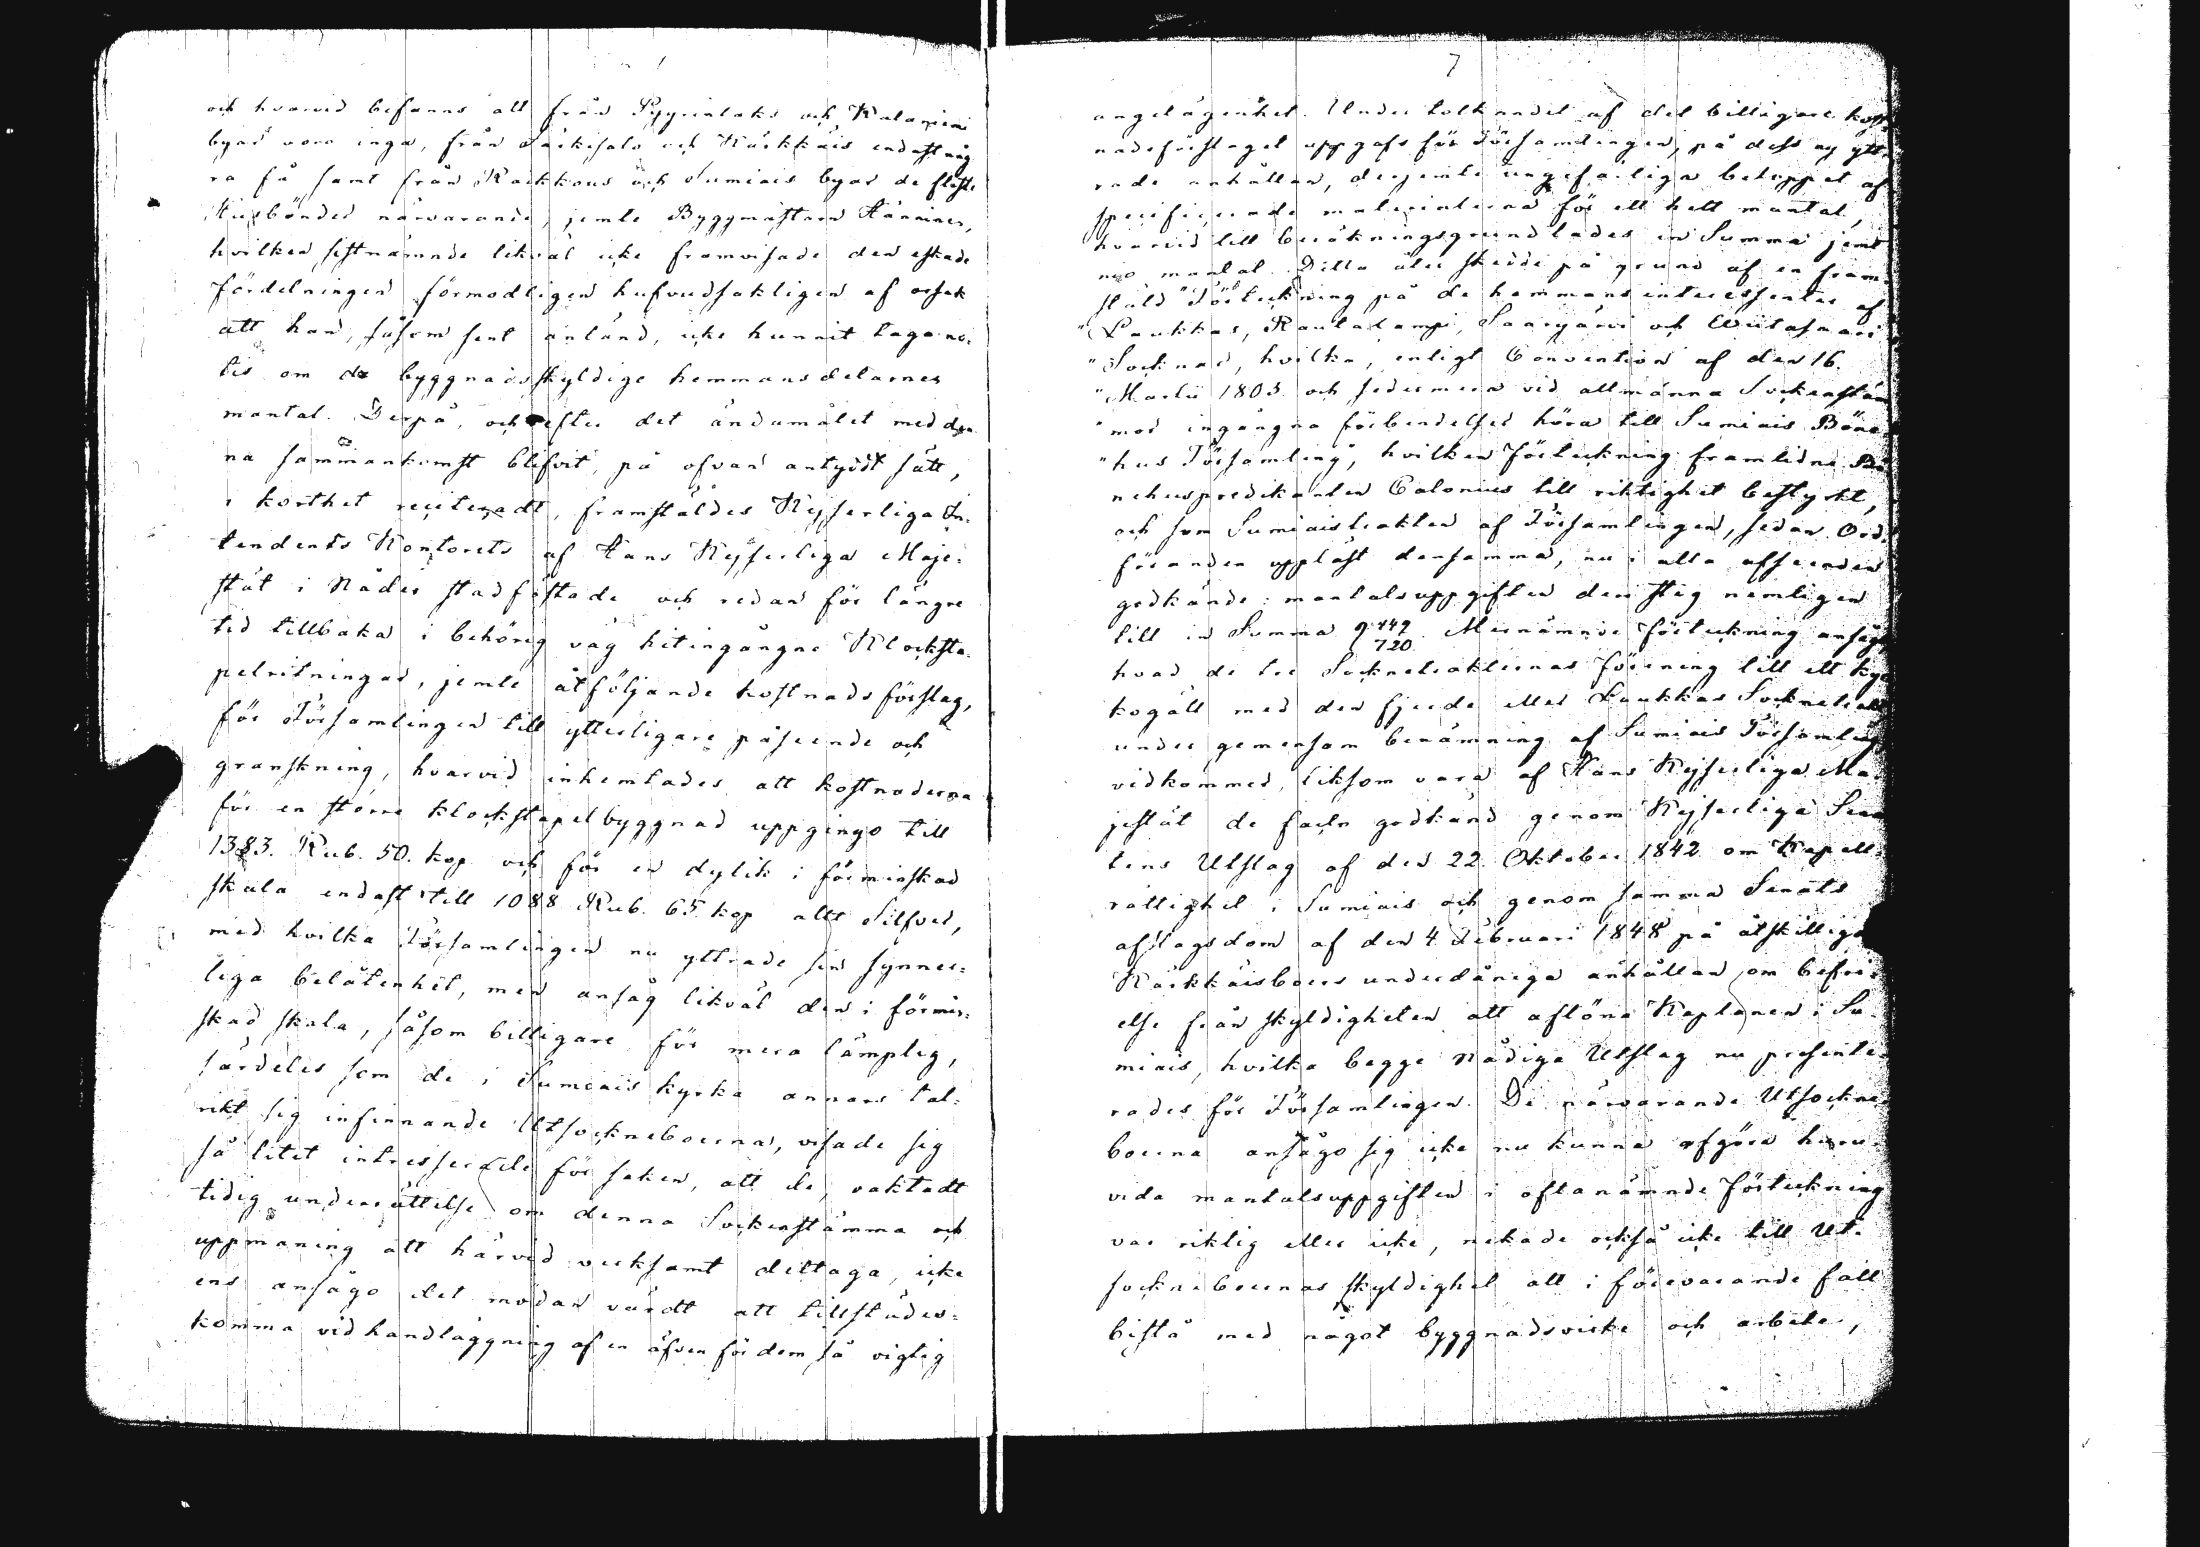 och hvarvid befanns att från Pyyrinlaks och Kalaniemi
byar voro inga, från Särkisalo och Räikkäis endast någ
ra få samt från Raikkous och Sumiais byar de fleste
Husbönder närvarande, jemte Byggmästaren Hänninen,
hvilken sistnämnde likväl icke framvisade den eskade
fördelningen förmodligen hufvudsakligen af orsak
att han, såsom sent anländ, icke hunnit taga no-
tis om de byggnadsskyldige hemmansdelarnes
mantal. Derpå, och efter det ändamålet med den
na sammankomst blifvit, på ofvan antydt sätt,
i korthet reciteradt, framställdes Kejserliga In-
tendents Kontorets af Hans Kejserliga Maje-
stät i Nåder stadfästade och redan för längre
tid tillbaka i behörig väg hitingångne Klocksta-
pelritningar, jemte åtföljande kostnadsförslag,
för Församlingen till ytterligare påseende och
granskning, hvarvid inhemtades att kostnaderna
för en större klockstapelbyggnad uppgingo till
1383. Rub. 50. kop och för en dylik i förminskad
skala endast till 1088 Rub. 65 kop allt Silfver,
med hvilka Församlingen nu yttrade sin synner-
liga belåtenhet, men ansåg likväl den i förmin-
skad skala, såsom billigare för mera lämplig,
särdeles som de i Sumiais kyrka annars tal-
rikt sig infinnande Utsockneboerna, visade sig
så litet intresserade för saken, att de, oaktadt
tidig underrättelse om denna Sockenstämma och
uppmaning att härvid verksamt deltaga, icke
ens ansågo det mödan värdt att tillstädes-
komma vid handläggning af en äfven för dem så vigtig
7
angelägenhet. Under tolkandet af det billigare kost-
nadsförslaget uppgafs för Församlingen, på dess ny ytt-
rade anhållan, derjemte ungefärliga beloppet af
specificerade materialierna för ett helt mantal,
hvarvid till beräkningsgrund lades en Summa jemt
nio mantal. Detta åter skedde på grund af en fram-
ställd "Förteckning på de hemmansinteressenter af
"Laukkas, Rautalampi, Saarijärvi och Wiitasaari
"Socknar, hvilka, enligt Convention af den 16.
"Martii 1803 och sedermera vid allmänna Sockenstäm
"mor ingångna förbindelser höra till Sumiais Böne
"hus Församling", hvilken Förteckning framlidne Bö
nehuspredikanten Calonius till riktighet bestyrkt,
och som Sumiaistrakten af Församlingen, sedan Ord-
föranden uppläst densamma, nu i alla afseenden
godkände: mantalsuppgiften der steg nemligen
till en Summa 9 149/720. Mernämnde Förteckning ansågs
hvad de tre Socknetrakternas förening till ett kyr
kogäll med den fjerde eller Laukkas Socknetrakt
under gemensam benämning af Sumiais Församling
vidkommer, liksom vara af Hans Kejserliga Ma-
jestät de facto godkänd genom Kejserliga Sena
tens Utslag af den 22 Oktober 1842 om Kapell-
rättighet i Sumiais och genom samma Senats
afslagsdom af den 4 Februari 1848 på åtskilliga
Räikkäisboers underdåniga anhållan om befri-
else från skyldigheten att aflöna Kaplanen i Su-
miais, hvilka begge Nådiga Utslag nu presente-
rades för Församlingen. De närvarande Utsockne-
boerna ansågo sig icke nu kunna afgöra huru-
vida mantalsuppgiften i oftanämnde Förteckning
var riktig eller icke, nekade också icke till Ut-
sockneboernas skyldighet att i förevarande fall
bistå med något byggnadsvirke och arbete,